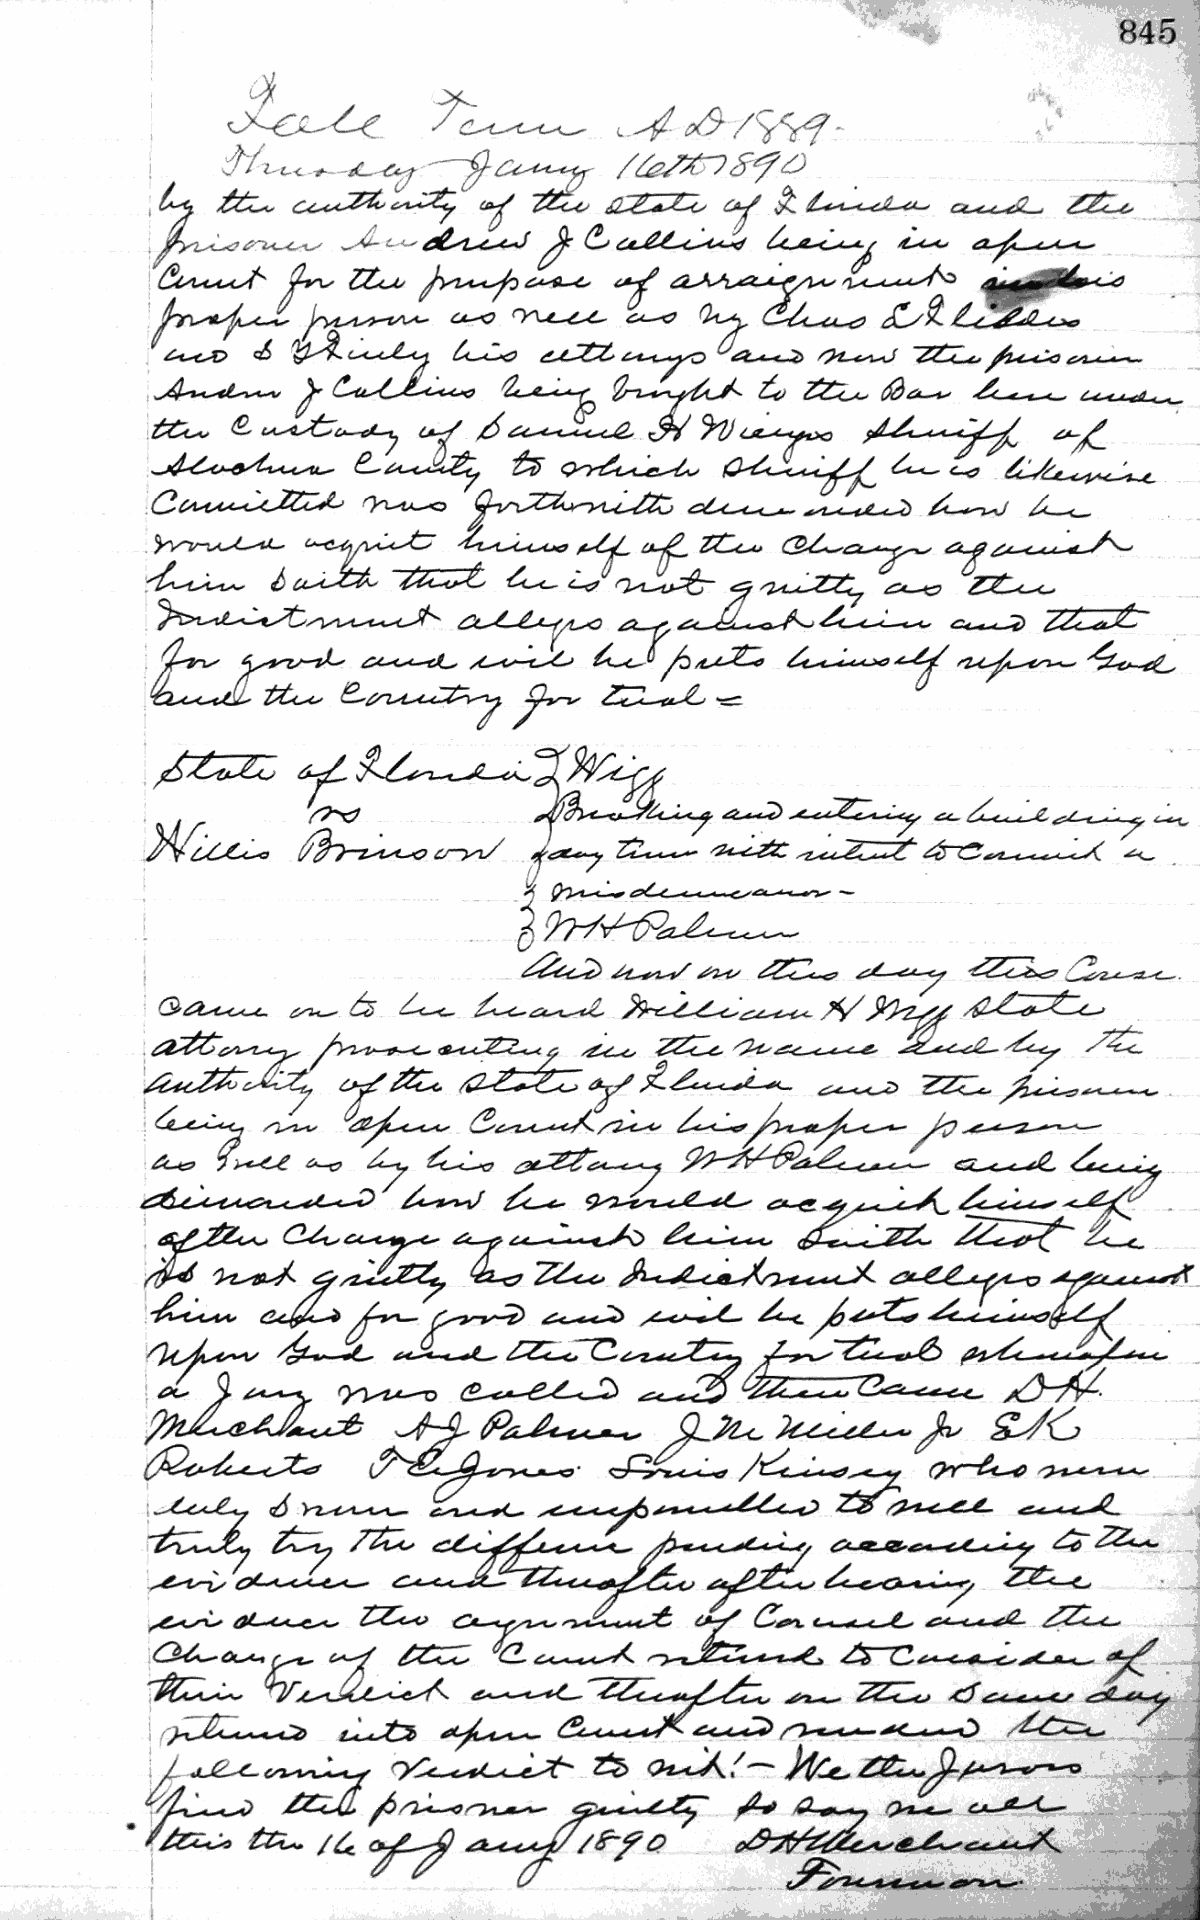 845
Fall Term A D 1889.
Thursday Jany 16th 1890
by the authority of the State of Florida and the
prisoner Andrew J Collins being in open
Court for the purpose of arraignment in his
proper person as well as by Chas E
and his attonys and now the prisoner
Andrew J Collins being brought to the Bar here under
the Custody of Samuel H Wienges Sheriff of
Alachua County to which Sheriff he is likewise
Committed was forthwith demanded how he
would acquit himself of the Charge against
him Saith that he is not guilty as the
Indictment alleges against him and that
for good and evil he puts himself upon God
and the Country for trial =
State of Florida } Wigg
vs } Breaking and entering a building in
Willis Brinson } day time with intent to Commit a
} misdemeanor -
} W H Palmer
And now on this day this Cause
came on to be heard William H Wigg State
attorny prosecuting in the name and by the
authority of the State of Florida and the prisoner
being in open Court in his proper person
as well as by his attony W H Palmer and being
demanded how he would acquit himself
of the Charge against him Saith that he
is not guilty as the Indictment alleges against
him and for good and evil he puts himself
upon God and the Country for trial whereafter
a Jury was called and then Came D H.
Merchant A J Palmer J M Miller Jr E K
Roberts T C Jones Louis Kinsey who were
duly Sworn and empanelled to well and
truly try the difference pending according to the
evidence and thereafter after hearing the
evidence the argument of Counsel and the
Charge of the Court retired to Consider of
their Verdict and thereafter on the Same day
returned into open Court and rendered the
following Verdict to wit! - We the Jurors
find the prisner guilty So Say we all
this the 16 of Jany 1890 D H Merchant
Foreman.